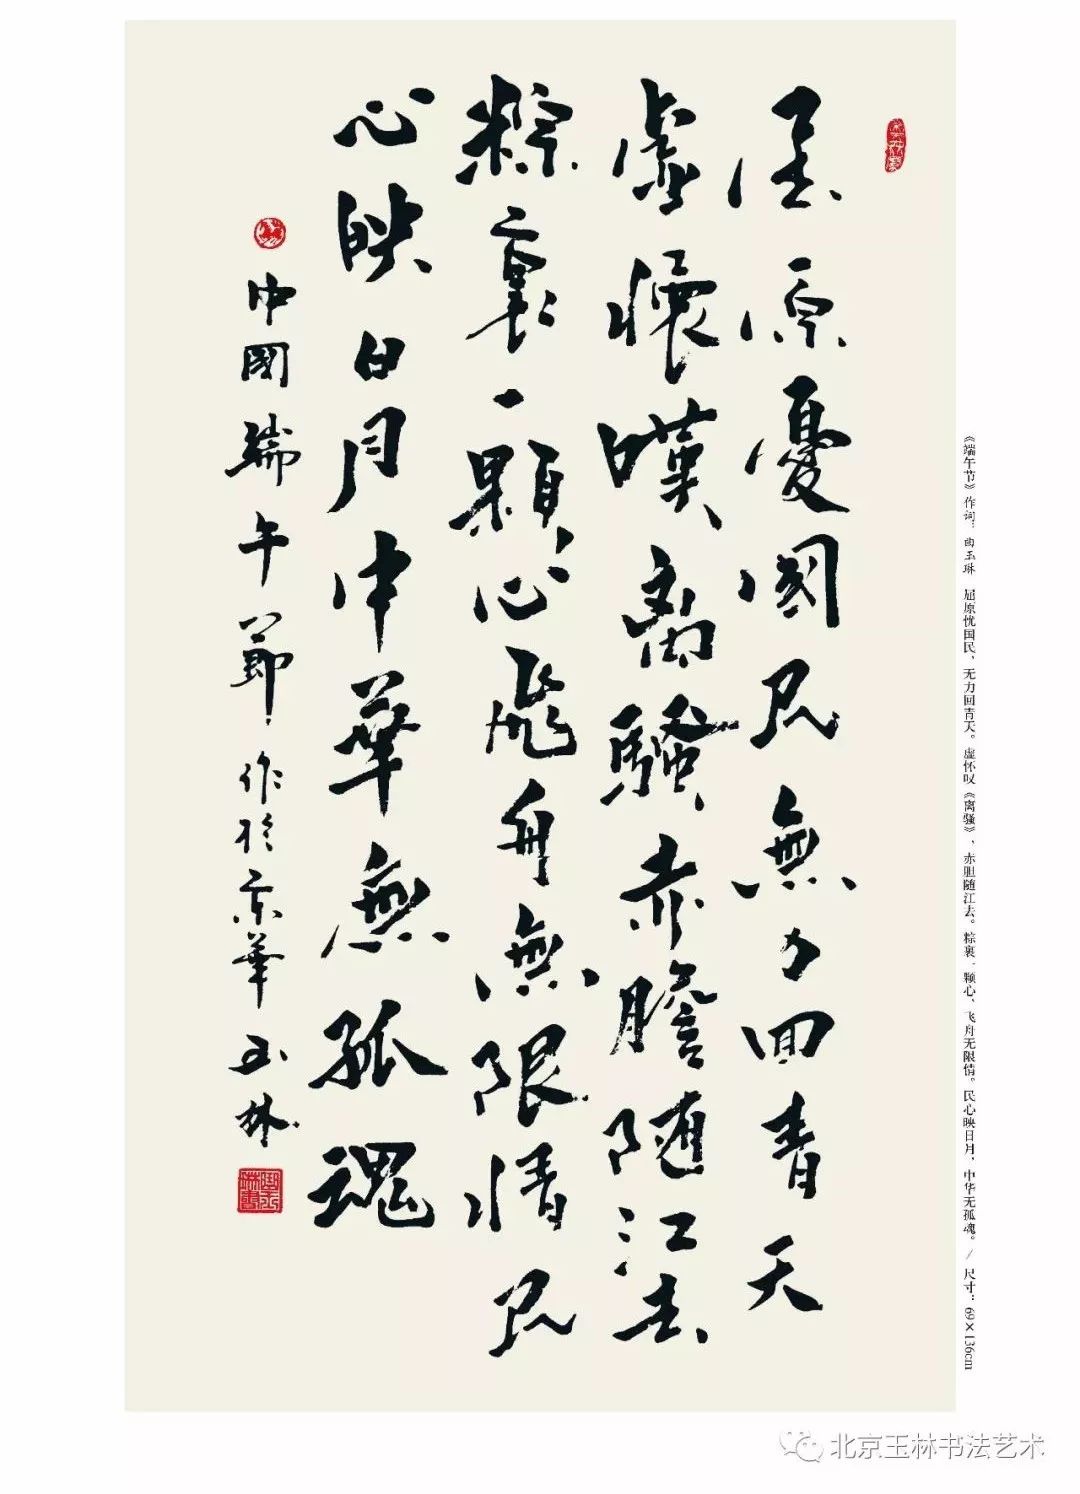 屈原憂國民無力回青天
虛懷嘆離騷赤膽随江去
粽裏一顆心飛舟無限情民
心映日月中華無孤魂
中國端午節作於京華玉林
《端午节》作词：曲玉琳 屈原忧国民，无力回青天。虚怀叹《离骚》，赤胆随江去。粽裹一颗心，飞舟无限情。民心映日月，中华无孤魂。/ 尺寸：69×136cm
北京玉林书法艺术